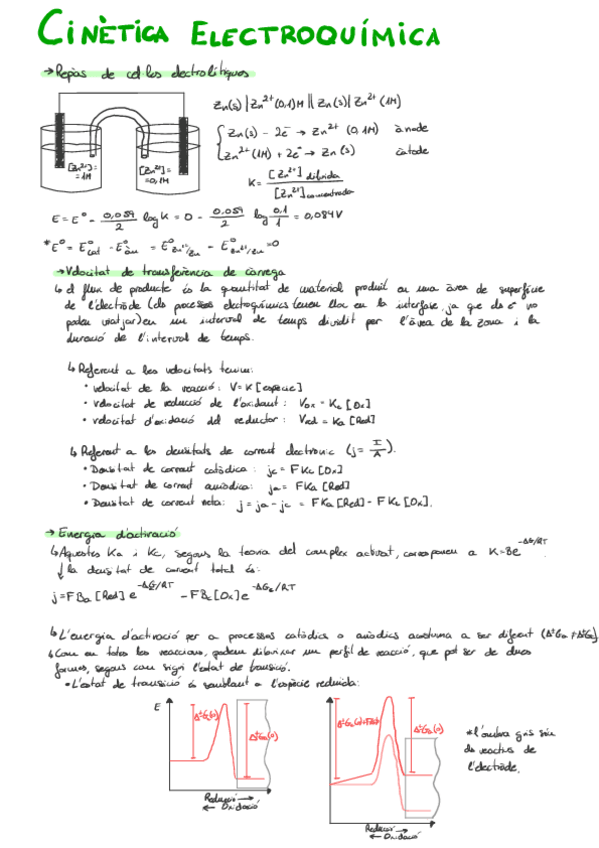 CINÈTICA ELECTROQUÍMICA
→ Repàs de cel·les electrolítiques
Zn(s) | Zn²⁺ (0,1)M || Zn(s) | Zn²⁺ (1M)
Zn(s) - 2e⁻ → Zn²⁺ (0,1M) ànode
Zn²⁺ (1M) + 2e⁻ → Zn(s) càtode
[Zn²⁺] = = 1M
[Zn²⁺] = = 0,1M
K = [Zn²⁺] diluida / [Zn²⁺] concentrada
E = E° - 0,059/2 log K = 0 - 0.059/2 log 0,1/1 = 0,084V
*E° = E°cat - E°àn = E°Zn²⁺/Zn - E°Zn²⁺/Zn = 0
→ Velocitat de transferència de càrrega
↳ el flux de producte és la quantitat de material produït en una àrea de superfície
de l'elèctrode (els processos electroquímics tenen lloc en la interfase, ja que els e⁻ no
poden viatjar) en un interval de temps dividit per l'àrea de la zona i la
duració de l'interval de temps.
↳ Referent a les velocitats tenim:
• velocitat de la reacció: V = K [espècie]
• velocitat de reducció de l'oxidant: Vox = Kc [Ox]
• velocitat d'oxidació del reductor: Vred = Ka [Red]
↳ Referent a les densitats de corrent electrònic (j = I/A).
• Densitat de corrent catòdica: jc = FKc [Ox]
• Densitat de corrent anòdica: ja = FKa [Red]
• Densitat de corrent neta: j = ja - jc = FKa [Red] - FKc [Ox].
→ Energia d'activació
↳ Aquestes Ka i Kc, segons la teoria del complex activat, corresponen a K = Be^-ΔG/RT
↓ la densitat de corrent total és:
j = FBa [Red] e^-ΔG/RT - FBc [Ox] e^-ΔGc/RT
↳ L'energia d'activació per a processos catòdics o anòdics acostuma a ser diferent (Δ‡Ga ≠ Δ‡Gc)
↳ Com en totes les reaccions, podem dibuixar un perfil de reacció, que pot ser de dues
formes, segons com sigui l'estat de transició.
• L'estat de transició és semblant a l'espècie reduïda:
E
Δ‡Gc(0)
Δ‡Ga(0)
Δ‡Ga(0)
*l'ombra gris són
els reactius de
l'elèctrode.
Reducció →
← Oxidació
Reducció →
← Oxidació